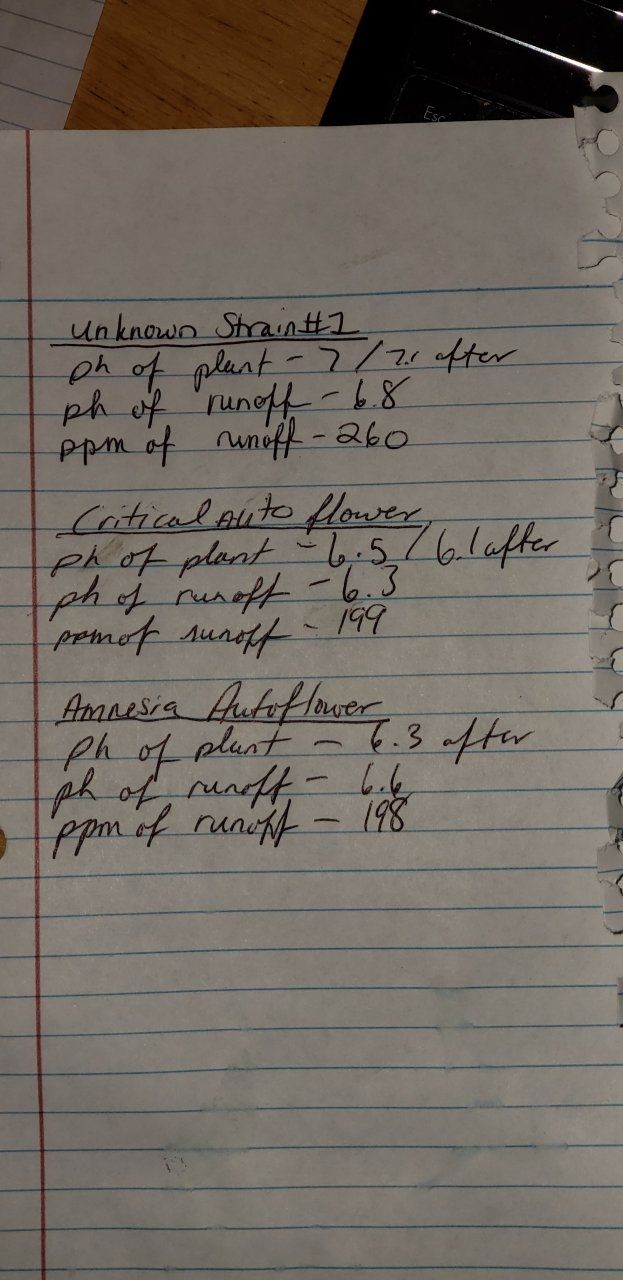 Esc
Unknown Strain #1
ph of plant - 7 / 7.1 after
ph of runoff - 6.8
ppm of runoff - 260
Critical Auto flower
ph of plant - 6.5 / 6.1 after
ph of runoff - 6.3
ppm of runoff - 199
Amnesia Autoflower
Ph of plant - 6.3 after
ph of runoff - 6.6
ppm of runoff - 198